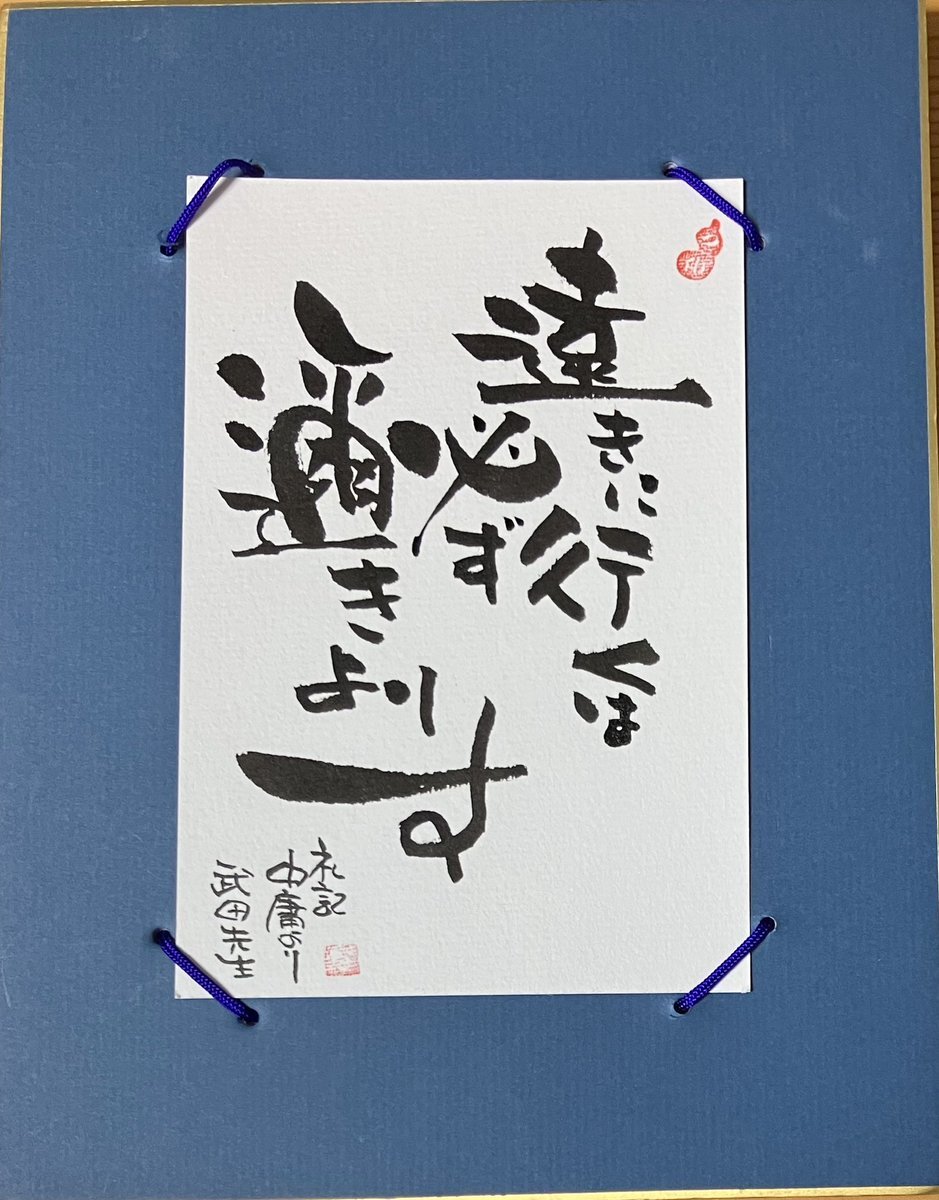 遠きに行くは
必ず
邇きよりす
礼記
中庸より
武田先生